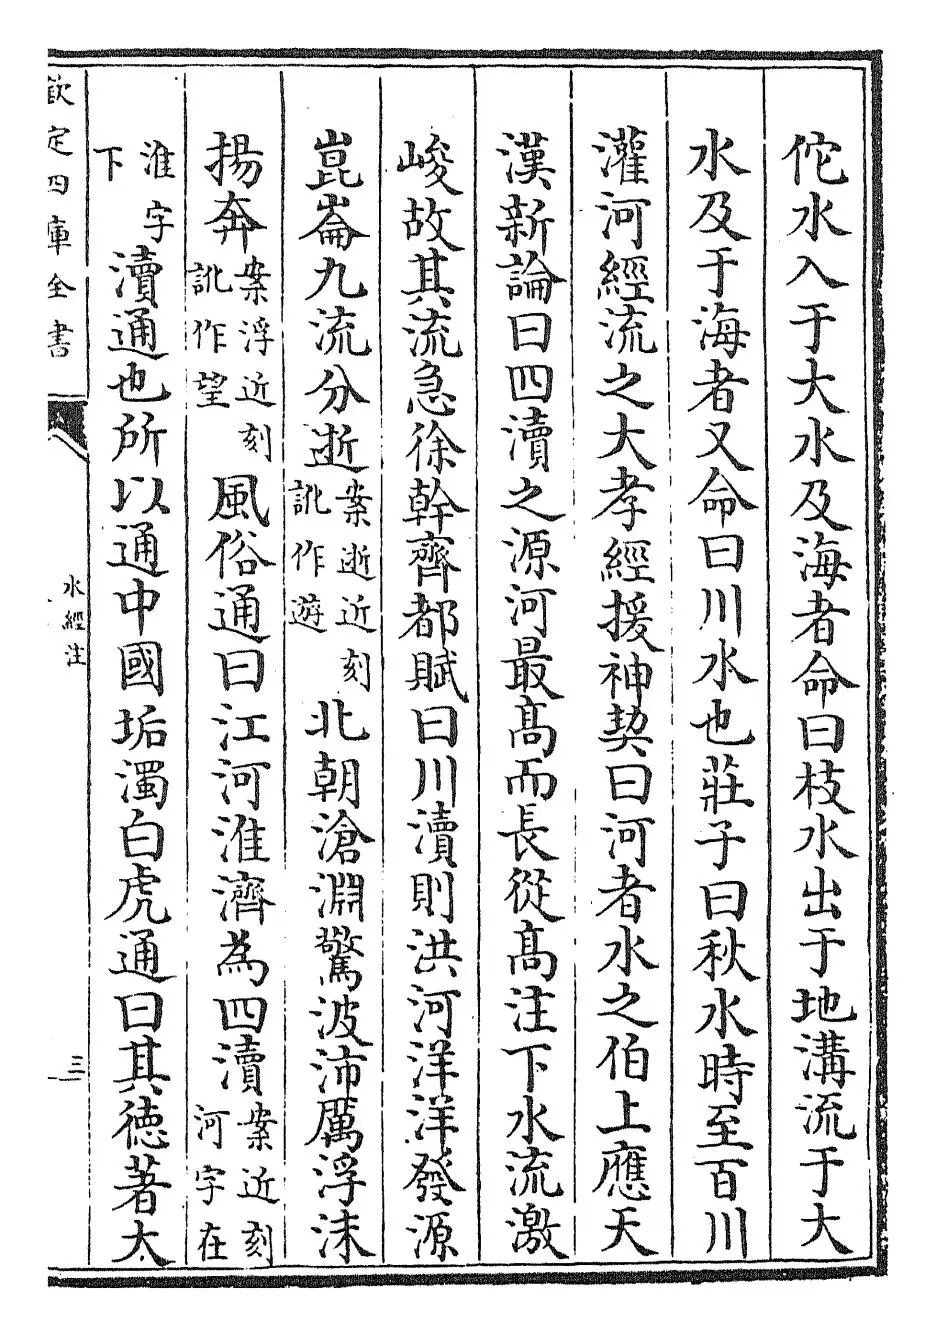 佗水入于大水及海者命曰枝水出于地溝流于大
水及于海者又命曰川水也莊子曰秋水時至百川
灌河經流之大孝經援神契曰河者水之伯上應天
漢新論曰四瀆之源河最髙而長從髙注下水流激
峻故其流急徐幹齊都賦曰川瀆則洪河洋洋發源
崑崙九流分逝案逝近刻訛作遊北朝滄淵驚波沛厲浮沫
揚奔案浮近刻訛作望風俗通曰江河淮濟為四瀆案近刻河字在
淮字下瀆通也所以通中國垢濁白虎通曰其徳著大
欽定四庫全書
水經注
三